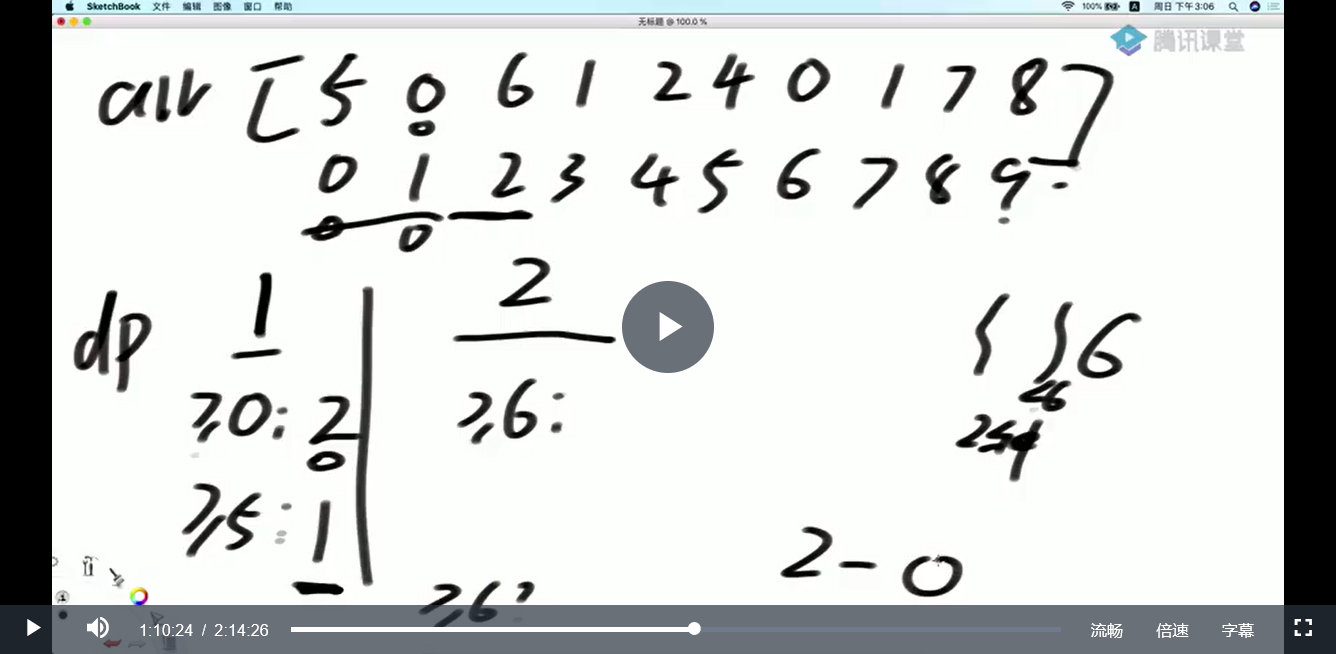 SketchBook 文件 编辑 图像 窗口 帮助 100% 周日 下午3:06
无标题 @ 100.0 %
腾讯课堂
arr [5 0 6 1 2 4 0 1 7 8]
0 1 2 3 4 5 6 7 8 9
0 0
dp 1 2
{ } 6
≥0: 2 ≥6:
0
≥5: 1
2-0
≥6:
1:10:24 / 2:14:26 流畅 倍速 字幕